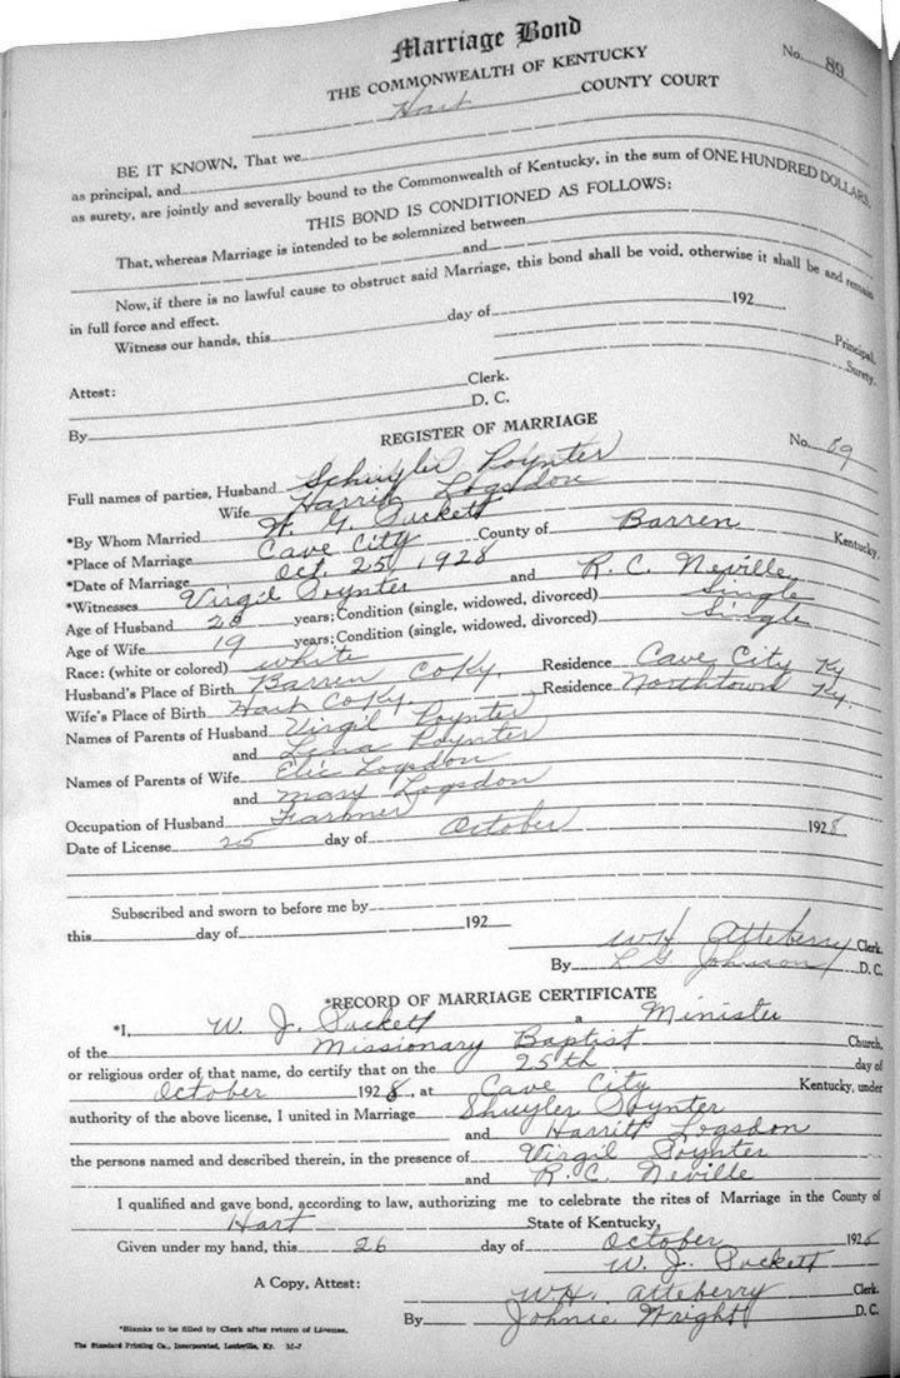 Marriage Bond
No. 89
THE COMMONWEALTH OF KENTUCKY
Hart COUNTY COURT
BE IT KNOWN, That we
as principal, and
as surety, are jointly and severally bound to the Commonwealth of Kentucky, in the sum of ONE HUNDRED DOLLARS.
THIS BOND IS CONDITIONED AS FOLLOWS:
That, whereas Marriage is intended to be solemnized between
and
Now, if there is no lawful cause to obstruct said Marriage, this bond shall be void, otherwise it shall be and remain
in full force and effect.
Witness our hands, this day of 192
Principal.
Surety.
Attest: Clerk.
By D. C.
REGISTER OF MARRIAGE
No. 89
Full names of parties, Husband Schuyler Poynter
Wife Harrit Logsdon
*By Whom Married W. G. Puckett
*Place of Marriage Cave City County of Barren Kentucky.
*Date of Marriage Oct. 25, 1928
*Witnesses Virgil Poynter and R. C. Neville
Age of Husband years; Condition (single, widowed, divorced) Single
Age of Wife 19 years; Condition (single, widowed, divorced) Single
Race: (white or colored) white
Husband's Place of Birth Barren Co Ky. Residence Cave City Ky
Wife's Place of Birth Hart Co Ky. Residence Northtown Ky.
Names of Parents of Husband Virgil Poynter
and Lena Poynter
Names of Parents of Wife Elic Logsdon
and Mary Logsdon
Occupation of Husband Farmer
Date of License 25 day of October 1928
Subscribed and sworn to before me by
this day of 192
W H Atteberry Clerk
By L G Johnson D. C.
*RECORD OF MARRIAGE CERTIFICATE
*I, W. J. Puckett a Minister
of the Missionary Baptist Church,
or religious order of that name, do certify that on the 25th day of
October 1928, at Cave City Kentucky, under
authority of the above license, I united in Marriage Shuyler Poynter
and Harritt Logsdon
the persons named and described therein, in the presence of Virgil Poynter
and R. C. Neville
I qualified and gave bond, according to law, authorizing me to celebrate the rites of Marriage in the County of
Hart State of Kentucky,
Given under my hand, this 26 day of October 192
W. J. Puckett
A Copy, Attest: W. H. Atteberry Clerk.
By Johnie Wright D. C.
*Blanks to be filled by Clerk after return of License.
The Standard Printing Co., Incorporated, Louisville, Ky.